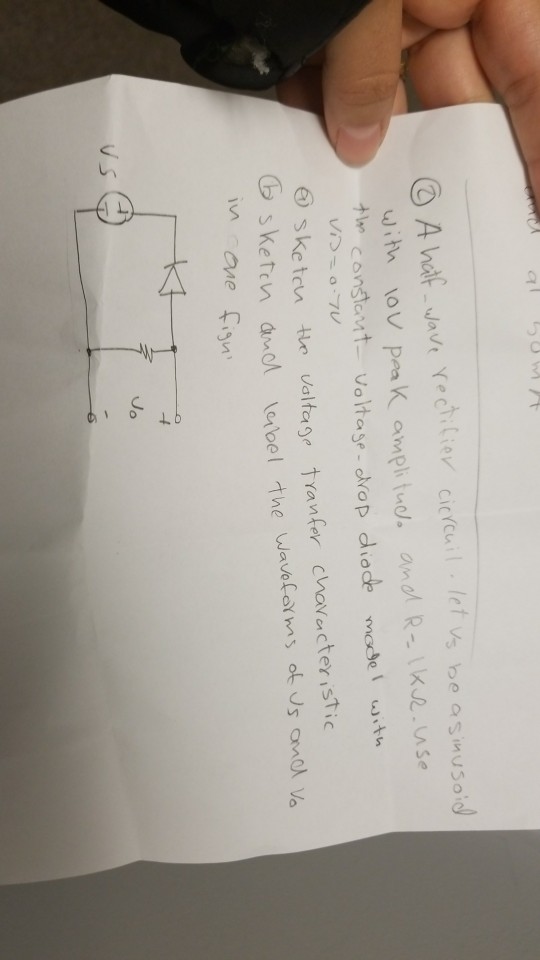 and at 50mA
② A half-wave rectifier circruil. let vs be a sinusoid
with 10V peak amplitude and R=1kΩ. Use
the constant-voltage-drop diode model with
VD=0.7V
ⓐ sketch the voltage tranfer characteristic
ⓑ sketch and label the waveforms of vs and vo
in one figur
vs
+
-
+
vo
-